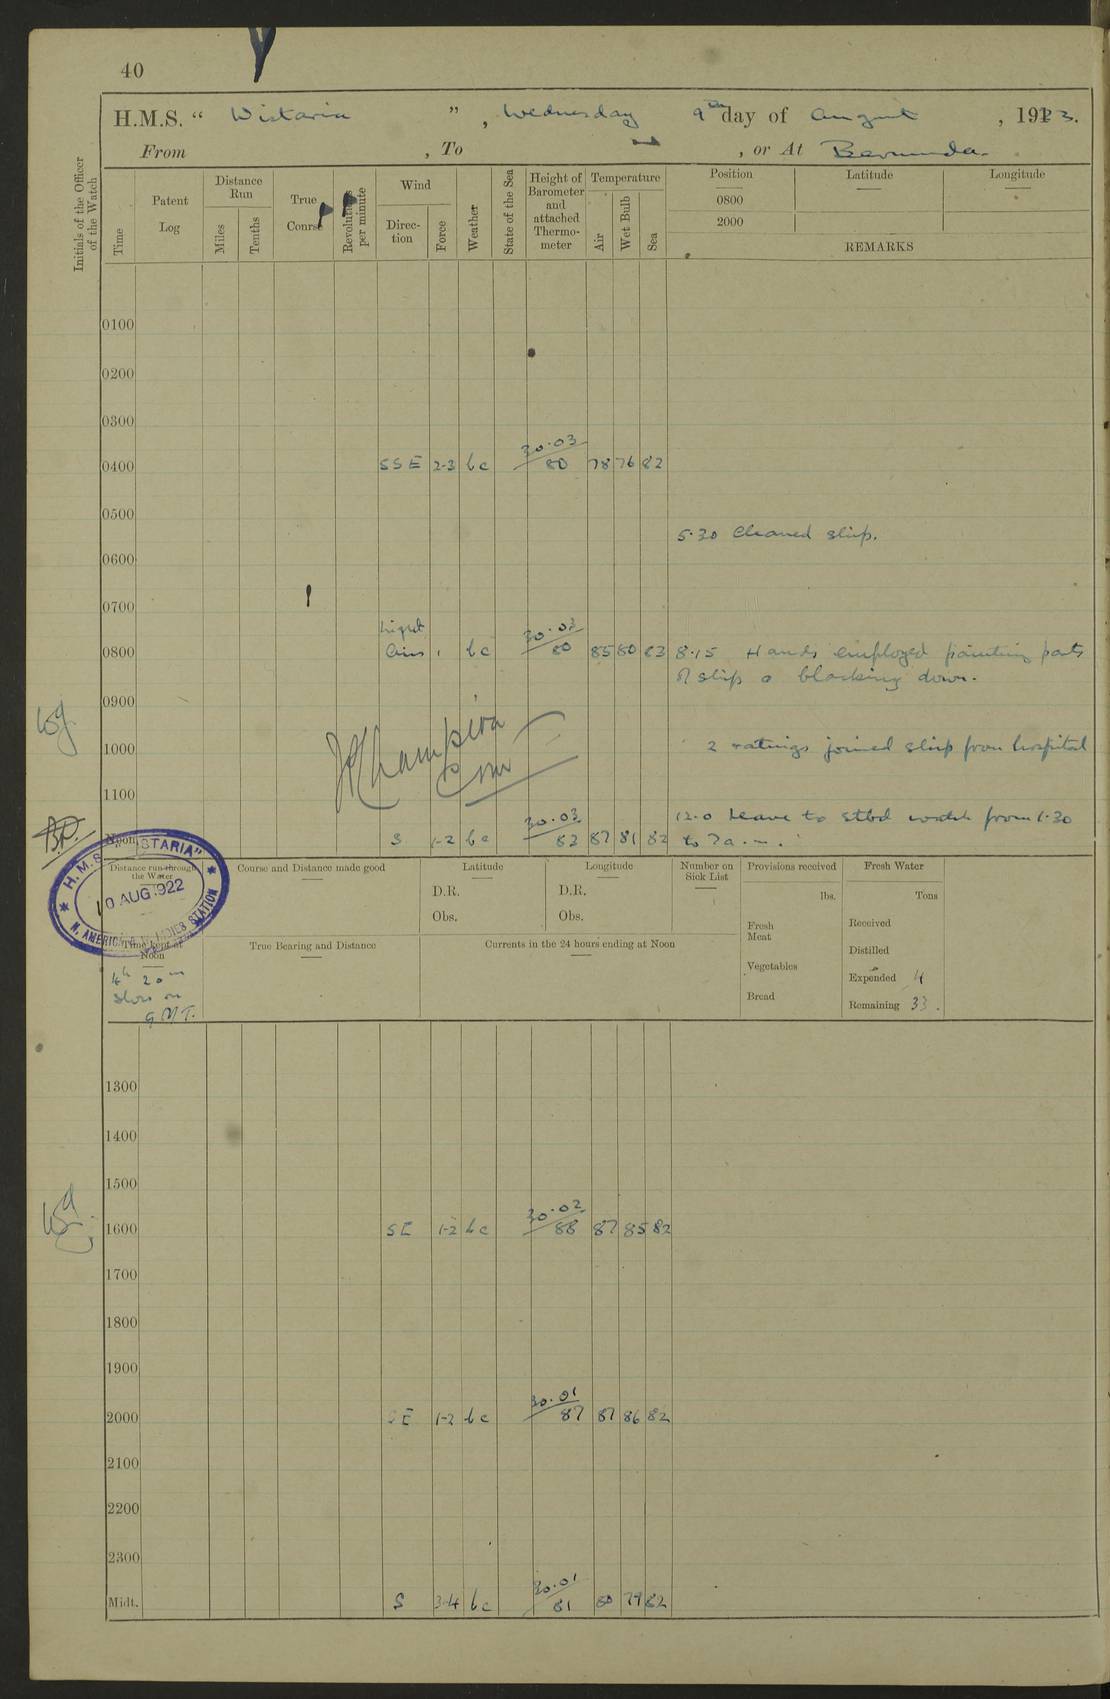 40
H.M.S. “ Wistaria ” , Wednesday 9th day of August , 1923.
From , To , or At Bermuda.
Initials of the Officer of the Watch
Time
Patent Log
Distance Run
Miles
Tenths
True Course
Revolutions per minute
Wind
Direc- tion
Force
Weather
State of the Sea
Height of Barometer and attached Thermo- meter
Temperature
Air
Wet Bulb
Sea
Position
Latitude
Longitude
0800
2000
REMARKS
0100
0200
0300
0400 SSE 2-3 bc 30.03 80 78 76 82
0500
5.30 Cleaned ship.
0600
0700
0800 Light airs 1 bc 30.03 80 85 80 83 8.15 Hands employed painting parts
of ship & blacking down.
0900
1000 2 ratings joined ship from hospital
JHChampion
1100
Noon S 1-2 bc 30.03 83 87 81 82 12.0 Leave to stbd watch from 1.30
to 7 a.m.
H.M.S. "WISTARIA"
10 AUG. 1922
N. AMERICA & W. INDIES STATION
Distance run through the Water
Course and Distance made good
Latitude
D.R.
Obs.
Longitude
D.R.
Obs.
Number on Sick List
Provisions received
lbs.
Fresh Meat
Vegetables
Bread
Fresh Water
Tons
Received
Distilled
Expended 4
Remaining 33.
Time kept at Noon
4h 20m
Slow on
G.M.T.
True Bearing and Distance
Currents in the 24 hours ending at Noon
1300
1400
1500
1600 SE 1-2 bc 30.02 88 87 85 82
1700
1800
1900
2000 SE 1-2 bc 30.01 87 87 86 82
2100
2200
2300
Midt. S 3-4 bc 30.01 81 80 79 82